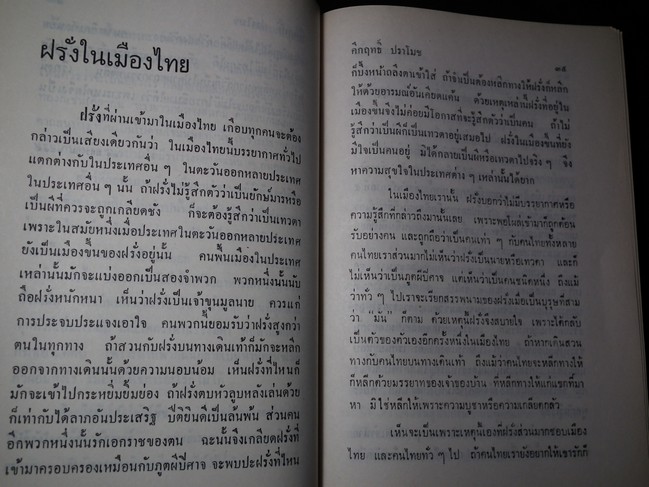 ฝรั่งในเมืองไทย
ฝรั่งที่ผ่านเข้ามาในเมืองไทย เกือบทุกคนจะต้อง
กล่าวเป็นเสียงเดียวกันว่า ในเมืองไทยนี้บรรยากาศทั่วไป
แตกต่างกับในประเทศอื่น ๆ ในตะวันออกหลายประเทศ
ในประเทศอื่น ๆ นั้น ถ้าฝรั่งไม่รู้สึกตัวว่าเป็นยักษ์มารหรือ
เป็นผีที่ควรจะถูกเกลียดชัง ก็จะต้องรู้สึกว่าเป็นเทวดา
เพราะในสมัยหนึ่งเมื่อประเทศในตะวันออกหลายประเทศ
ยังเป็นเมืองขึ้นของฝรั่งอยู่นั้น คนพื้นเมืองในประเทศ
เหล่านั้นมักจะแบ่งออกเป็นสองจำพวก พวกหนึ่งนั้นนับ
ถือฝรั่งหนักหนา เห็นว่าฝรั่งเป็นเจ้าขุนมูลนาย ควรแก่
การประจบประแจงเอาใจ คนพวกนี้ยอมรับว่าฝรั่งสูงกว่า
ตนในทุกทาง ถ้าสวนกับฝรั่งบนทางเดินเท้าก็มักจะหลีก
ออกจากทางเดินนั้นด้วยความนอบน้อม เห็นฝรั่งที่ไหนก็
มักจะเข้าไปกระหยิ่มยิ้มย่อง ถ้าฝรั่งตบหัวลูบหลังเล่นด้วย
ก็เท่ากับได้ลาภอันประเสริฐ ปีติยินดีเป็นล้นพ้น ส่วนคน
อีกพวกหนึ่งนั้นรักเอกราชของตน ฉะนั้นจึงเกลียดฝรั่งที่
เข้ามาครอบครองเหมือนกับภูตผีปีศาจ จะพบปะฝรั่งที่ไหน
คึกฤทธิ์ ปราโมช ๓๕
ก็บึ้งหน้าถลึงตาเข้าใส่ ถ้าจำเป็นต้องหลีกทางให้ฝรั่งก็หลีก
ให้ด้วยอารมณ์อันเคียดแค้น ด้วยเหตุเหล่านี้ฝรั่งที่อยู่ใน
เมืองขึ้นจึงไม่ค่อยมีโอกาสที่จะรู้สึกตัวว่าเป็นคน ถ้าไม่
รู้สึกว่าเป็นผีก็เป็นเทวดาอยู่เสมอไป ฝรั่งในเมืองขึ้นที่ยัง
มีใจเป็นคนอยู่ มิได้กลายเป็นผีหรือเทวดาไปจริง ๆ จึง
หาความสุขใจในประเทศต่าง ๆ เหล่านั้นได้ยาก
ในเมืองไทยเรานั้น ฝรั่งบอกว่าไม่มีบรรยากาศหรือ
ความรู้สึกที่กล่าวถึงมานั้นเลย เพราะพอโผล่เข้ามาก็ถูกต้อน
รับอย่างคน และถูกถือว่าเป็นคนเท่า ๆ กับคนไทยทั้งหลาย
คนไทยเราส่วนมากไม่เห็นว่าฝรั่งเป็นนายหรือเทวดา และก็
ไม่เห็นว่าเป็นภูตผีปีศาจ แต่เห็นว่าเป็นคนชนิดหนึ่ง ถึงแม้
ว่าทั่ว ๆ ไปเราจะเรียกสรรพนามของฝรั่งเมื่อเป็นบุรุษที่สาม
ว่า “มัน” ก็ตาม ด้วยเหตุนี้ฝรั่งจึงสบายใจ เพราะได้กลับ
เป็นตัวของตัวเองอีกครั้งหนึ่งในเมืองไทย ถ้าหากเดินสวน
ทางกับคนไทยบนทางเดินเท้า ถึงแม้ว่าคนไทยจะหลีกทางให้
ก็หลีกด้วยมรรยาทของเจ้าของบ้าน ที่หลีกทางให้แก่แขกที่มา
หา มิใช่หลีกให้เพราะความบูชาหรือความเกลียดกลัว
เห็นจะเป็นเพราะเหตุนี้เองที่ฝรั่งส่วนมากชอบเมือง
ไทย และคนไทยทั่ว ๆ ไป ถ้าคนไทยเรายังอยากให้เขารักก็